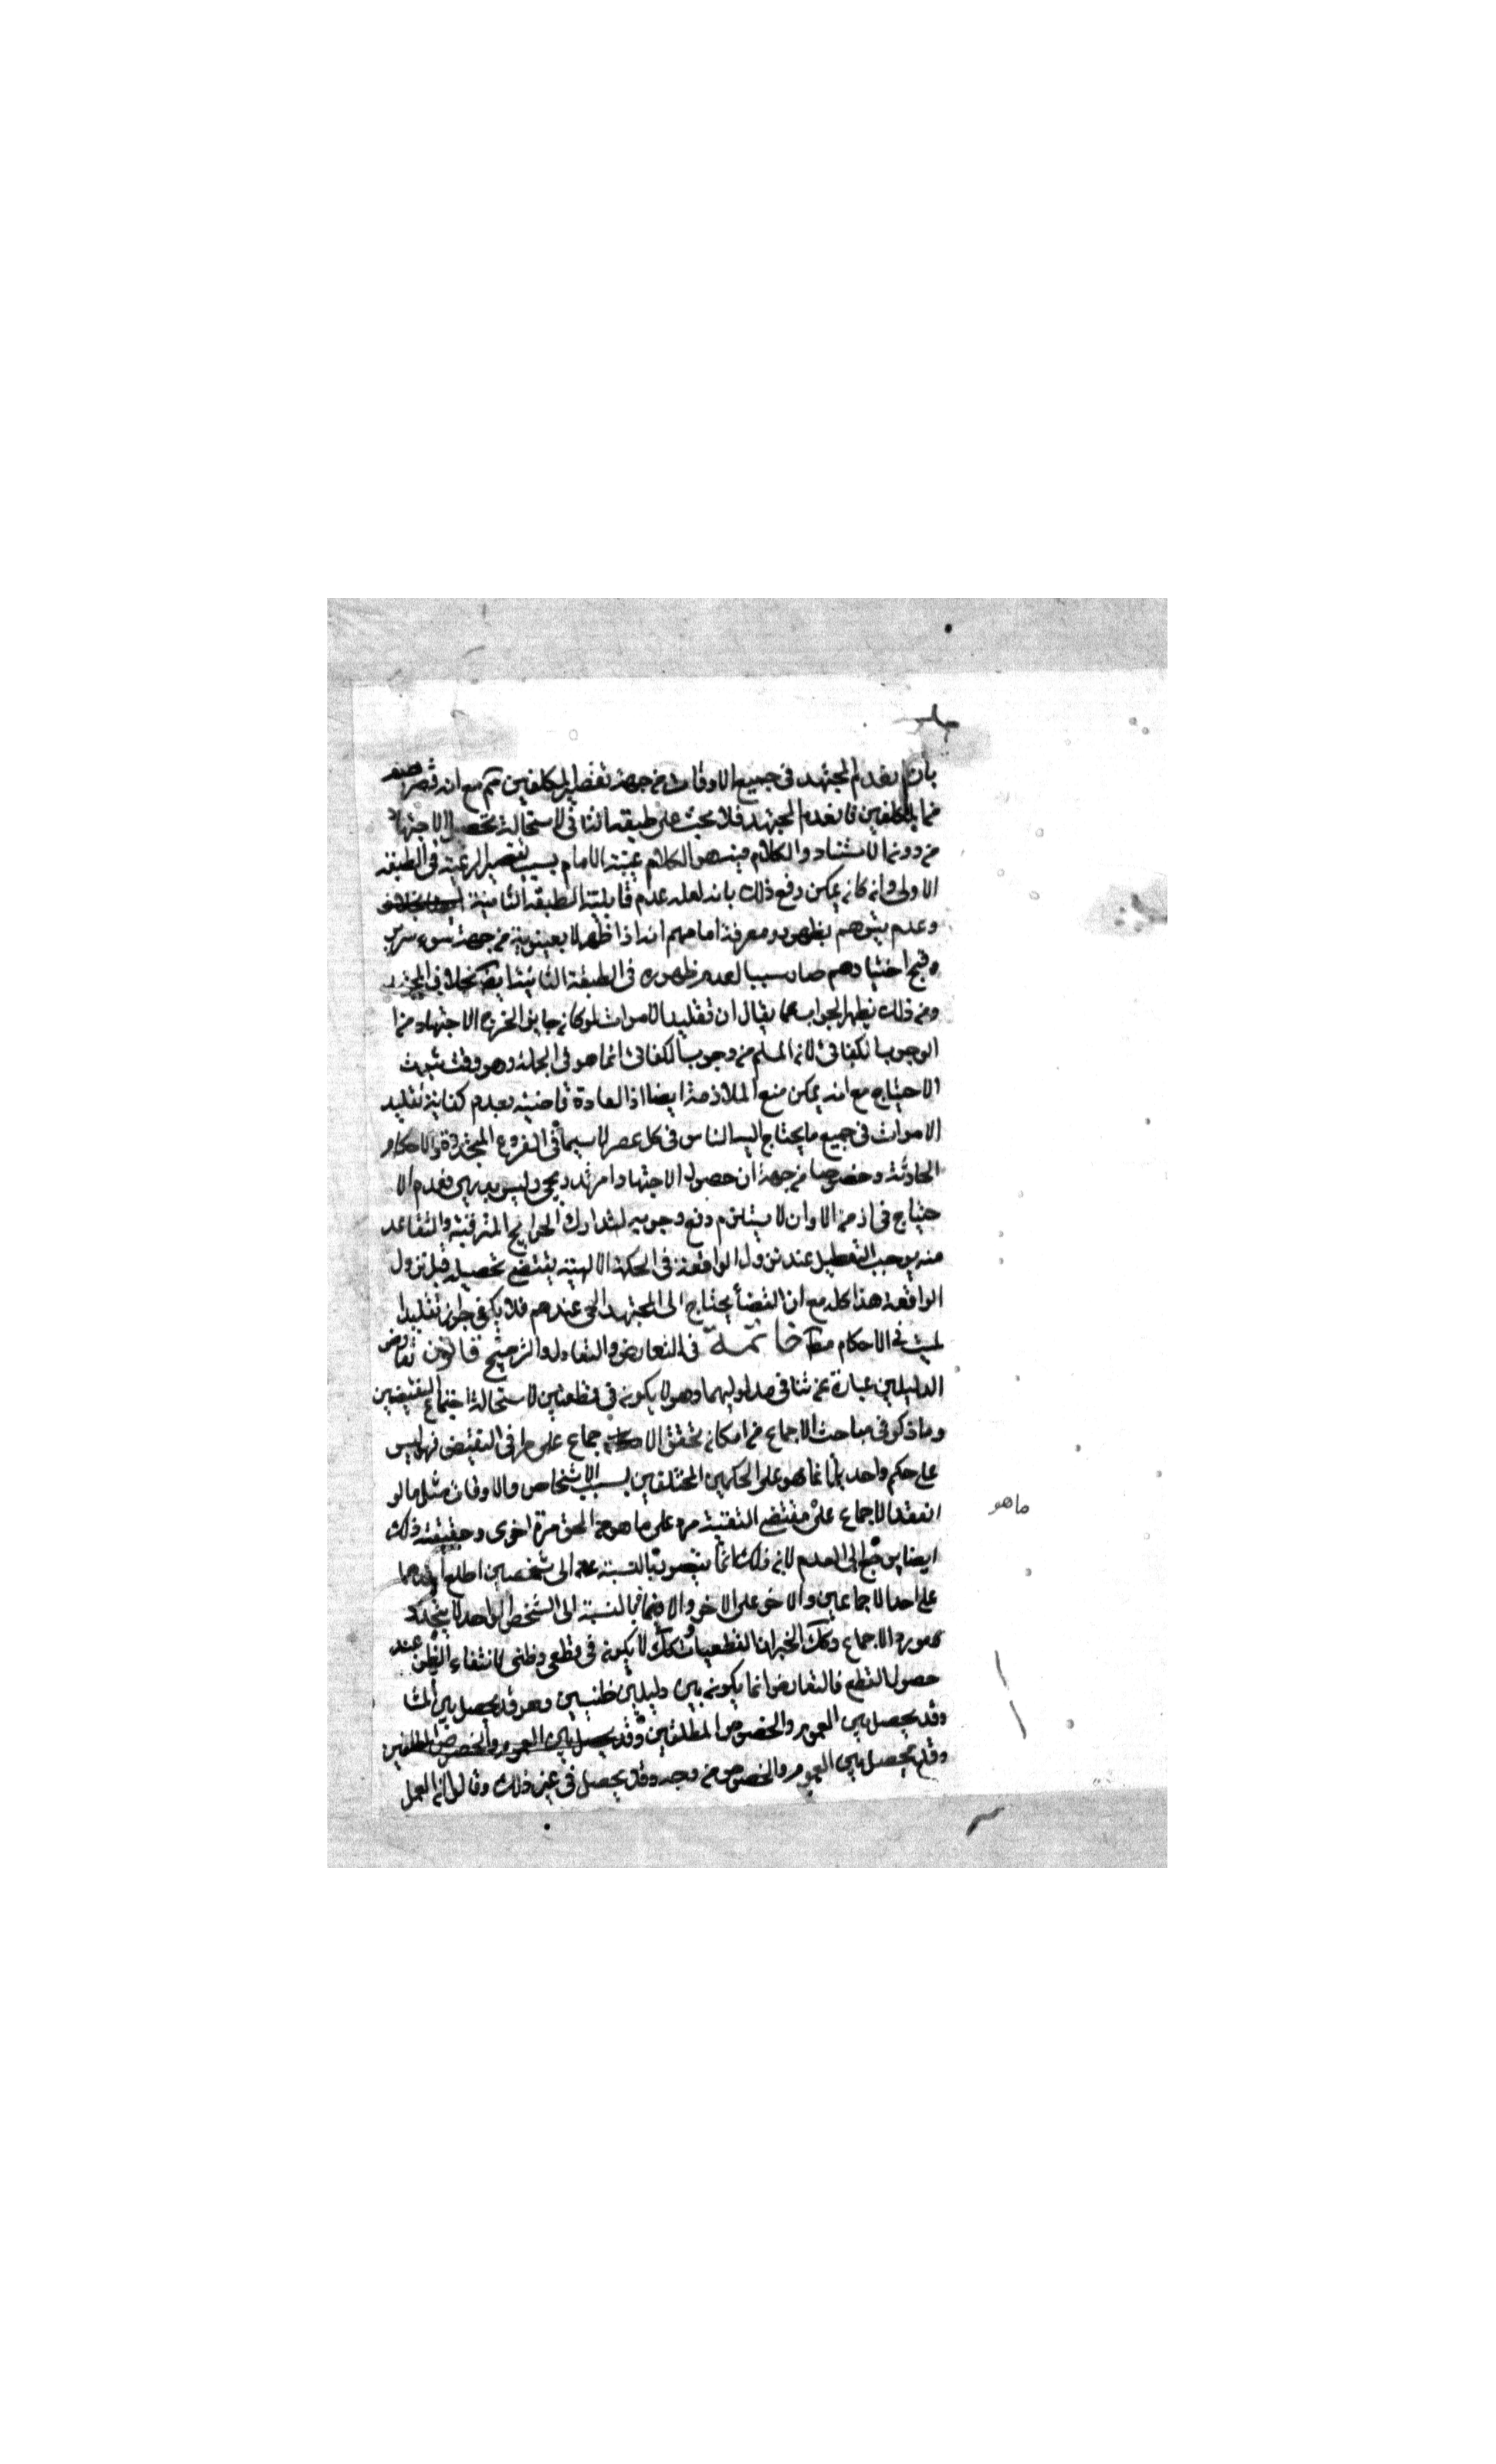 بان يعدم المجتهد في جميع الاوقات من جهة تقصير المكلفين ثم مع انه قصر بعض
من المكلفين فانعدم المجتهد فلا بحث على طبقه الثاني لاستحالة تحصيل الاجتهاد
من دون الاستناد والكلام فيه هو الكلام غيبة الامام بسبب تقصير الرعية في الطبقه
الاولى وانه كان يمكن دفع ذلك بانه لعله عدم قابلية الطبقه الثانية
وعدم بظهور ومعرفة امامهم انه اذا ظهر لا يعينونه من جهة سوء
وقبح اختيارهم صار سببا لعدم ظهوره في الطبقة الثانية ايضا بخلاف المجتهد
ومن ذلك يظهر الجواب عما يقال ان تقليد الاموات لو كان جايز الخرج الاجتهاد من
الوجوب الكفائي لان المسلم من وجوب الكفائي انما هو في الجملة وهو وقت ثبوت
الاحتياج مع انه يمكن منع الملازمة ايضا اذ العادة قاضية بعدم كفاية تقليد
الاموات في جميع ما يحتاج اليه الناس في كل عصر لا سيما في الفروع المتجددة والاحكام
الحادثة وخصوصا من جهة ان حصول الاجتهاد امر تدريجي وليس بديهي فعدم الا
حتياج في ازمنة الاوان لا يستلزم دفع وجوبه لتدارك الحوايج المترقبة والتقاعد
منه يوجب التعطيل عند نزول الواقعة في الحكمة الالهية يقتضي تحصيله قبل نزول
الواقعة هذا كله مع ان القضا يحتاج الى المجتهد الحي عندهم فلا يكفي جواز تقليد
لميت في الاحكام مط خاتمة في التعارض والتعادل والترجيح قانون تعارض
الدليلين عبارة عن تنافي مدلوليهما وهو لا يكون في قطعيين لاستحالة اجتماع النقيضين
وما ذكر في مباحث الاجماع من امكان تحقق الا جماع على طرفي النقيض فهو ليس
على حكم واحد بل انما هو على الحكمين المختلفين بسبب الاشخاص والاوقات مثل ما لو
انعقد الاجماع على مقتضى التقية مرة على ما هو الحق مرة اخرى وحقيقة ذلك
ماهو
ايضا يرجع الى العدم لان ذلك انما يتصور بالنسبة الى شخصين اطلع احدهما
على احد الاجماعين والاخر على الاخر والا فبالنسبة الى الشخص الواحد لا يتحد
مورد الاجماع وكك الخبران القطعيان وكك لا يكون في قطعي وظني لانتفاء الظن عند
حصول القطع فالتعارض انما يكون بين دليلين ظنيين وهو قد يحصل بين المتبا
وقد يحصل بين العموم والخصوص المطلقين وقد يحصل بين العموم والخصوص المطلقين
وقد يحصل بين العموم والخصوص من وجه وقد يحصل في غير ذلك وقالوا ان العمل